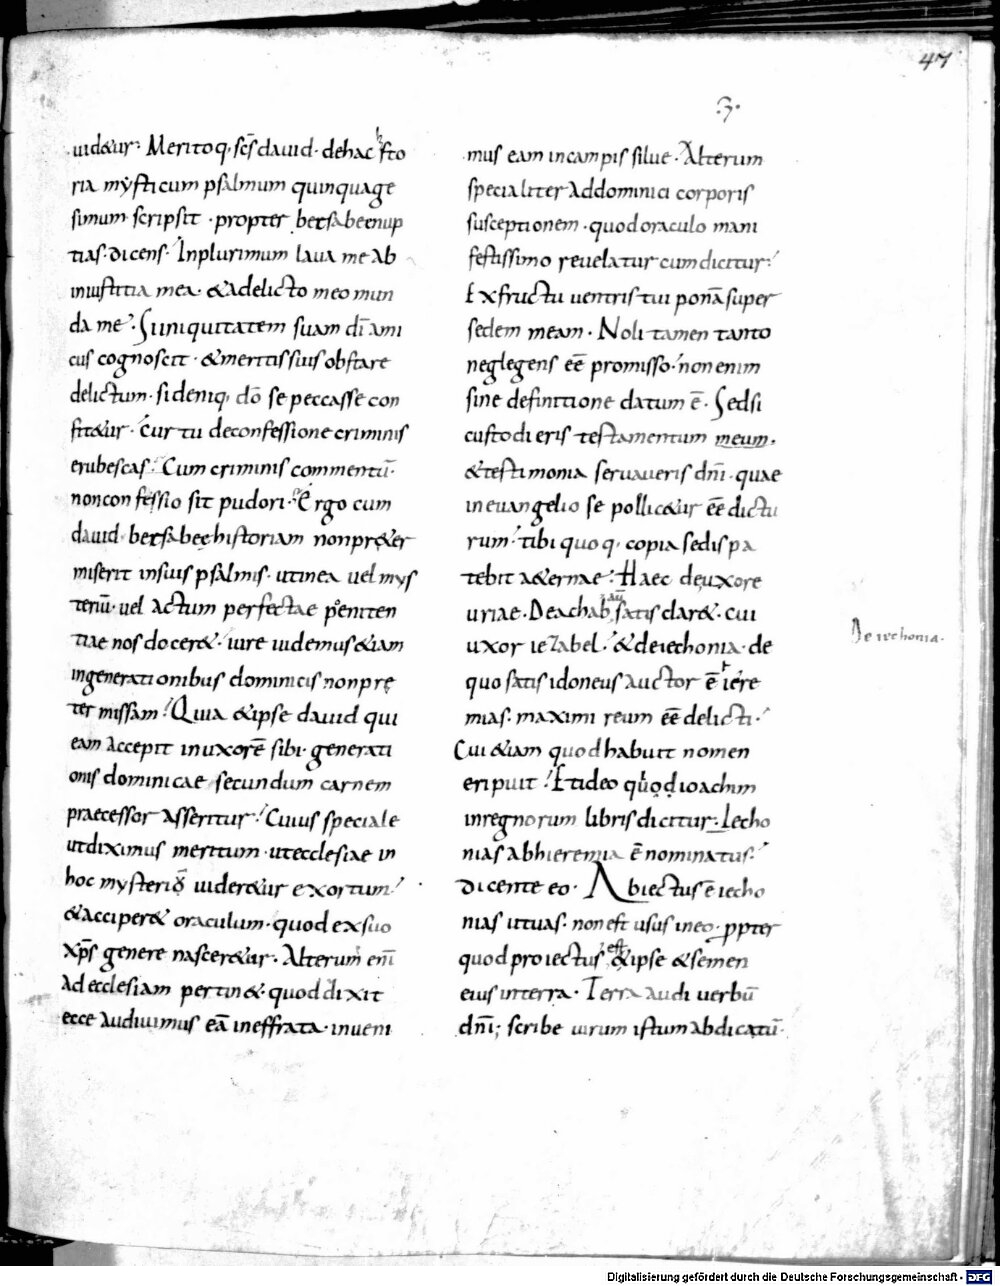 47
.3.
uid&ur. Meritoq, scs̄ dauid. dehac hısto
ria mẏsticum psalmum quinquage
simum scripsit. propter betsabeęnup
tias. dicens. Inplurimum laua me ab
iniustitia mea. & adelicto meo mun
da me. Si iniquitatem suam dī ami
cus cognoscit. & meritis suis obstare
delictum. si deniq, dō se peccasse con
fit&ur. Cur tu deconfessione criminis
erubescas. Cum criminis commentū.
nonconfessio sit pudori. Ergo cum
dauid. betsabeę historiam nonpr&er
miserit insuis psalmis. utinea uel mys
teriū. uel actum perfectae poeniten
tiae nos docer&. iure uidemus &iam
ingenerationibus dominicis nonpre
ter missam. Quia &ipse dauid qui
eam accepit inuxorē sibi. generati
onis dominicae secundum carnem
praecessor asseritur. Cuius speciale
utdiximus meritum. utecclesiae in
hoc mysteriō uider&ur exortum.
& acciper& oraculum. quod exsuo
xp̄s genere nascer&ur. Alterum enī
ad ecclesiam pertin&. quod dixit
ecce audiuimus eā ineffrata. inueni
mus eam incampis silue. Alterum
specialiter addominici corporis
susceptionem. quod oraculo mani
festissimo reuelatur cumdicitur.
Exfructu uentris tui ponā super
sedem meam. Noli tamen tanto
neglegens eē promisso. nonenim
sine definitione datum ē. Sedsi
custodieris testamentum meum.
& testimonia seruaueris dnī. quae
ineuangelio se pollic&ur eē dictu
rum. tibi quoq, copia sedis pa
tebit a&ernae. Haec deuxore
uriae. Deachab aū satis clar&. cui
uxor iezabel. & deiechonia. de
quo satis idoneus auctor ē iere
mias. maximi reum eē delicti.
Cui &iam quod habuit nomen
eripuit. Et ideo quod ioachim
inregnorum libris dicitur. Iecho
nias abhieremia ē nominatus.
dicente eo. Abiectus ē iecho
nias utuas. non est usus ineo. ꝓpter
quod proiectus est &ipse &semen
eius interra. Terra audi uerbū
dnī; scribe uirum istum abdicatū.
De iechonia.
Digitalisierung gefördert durch die Deutsche Forschungsgemeinschaft - DFG